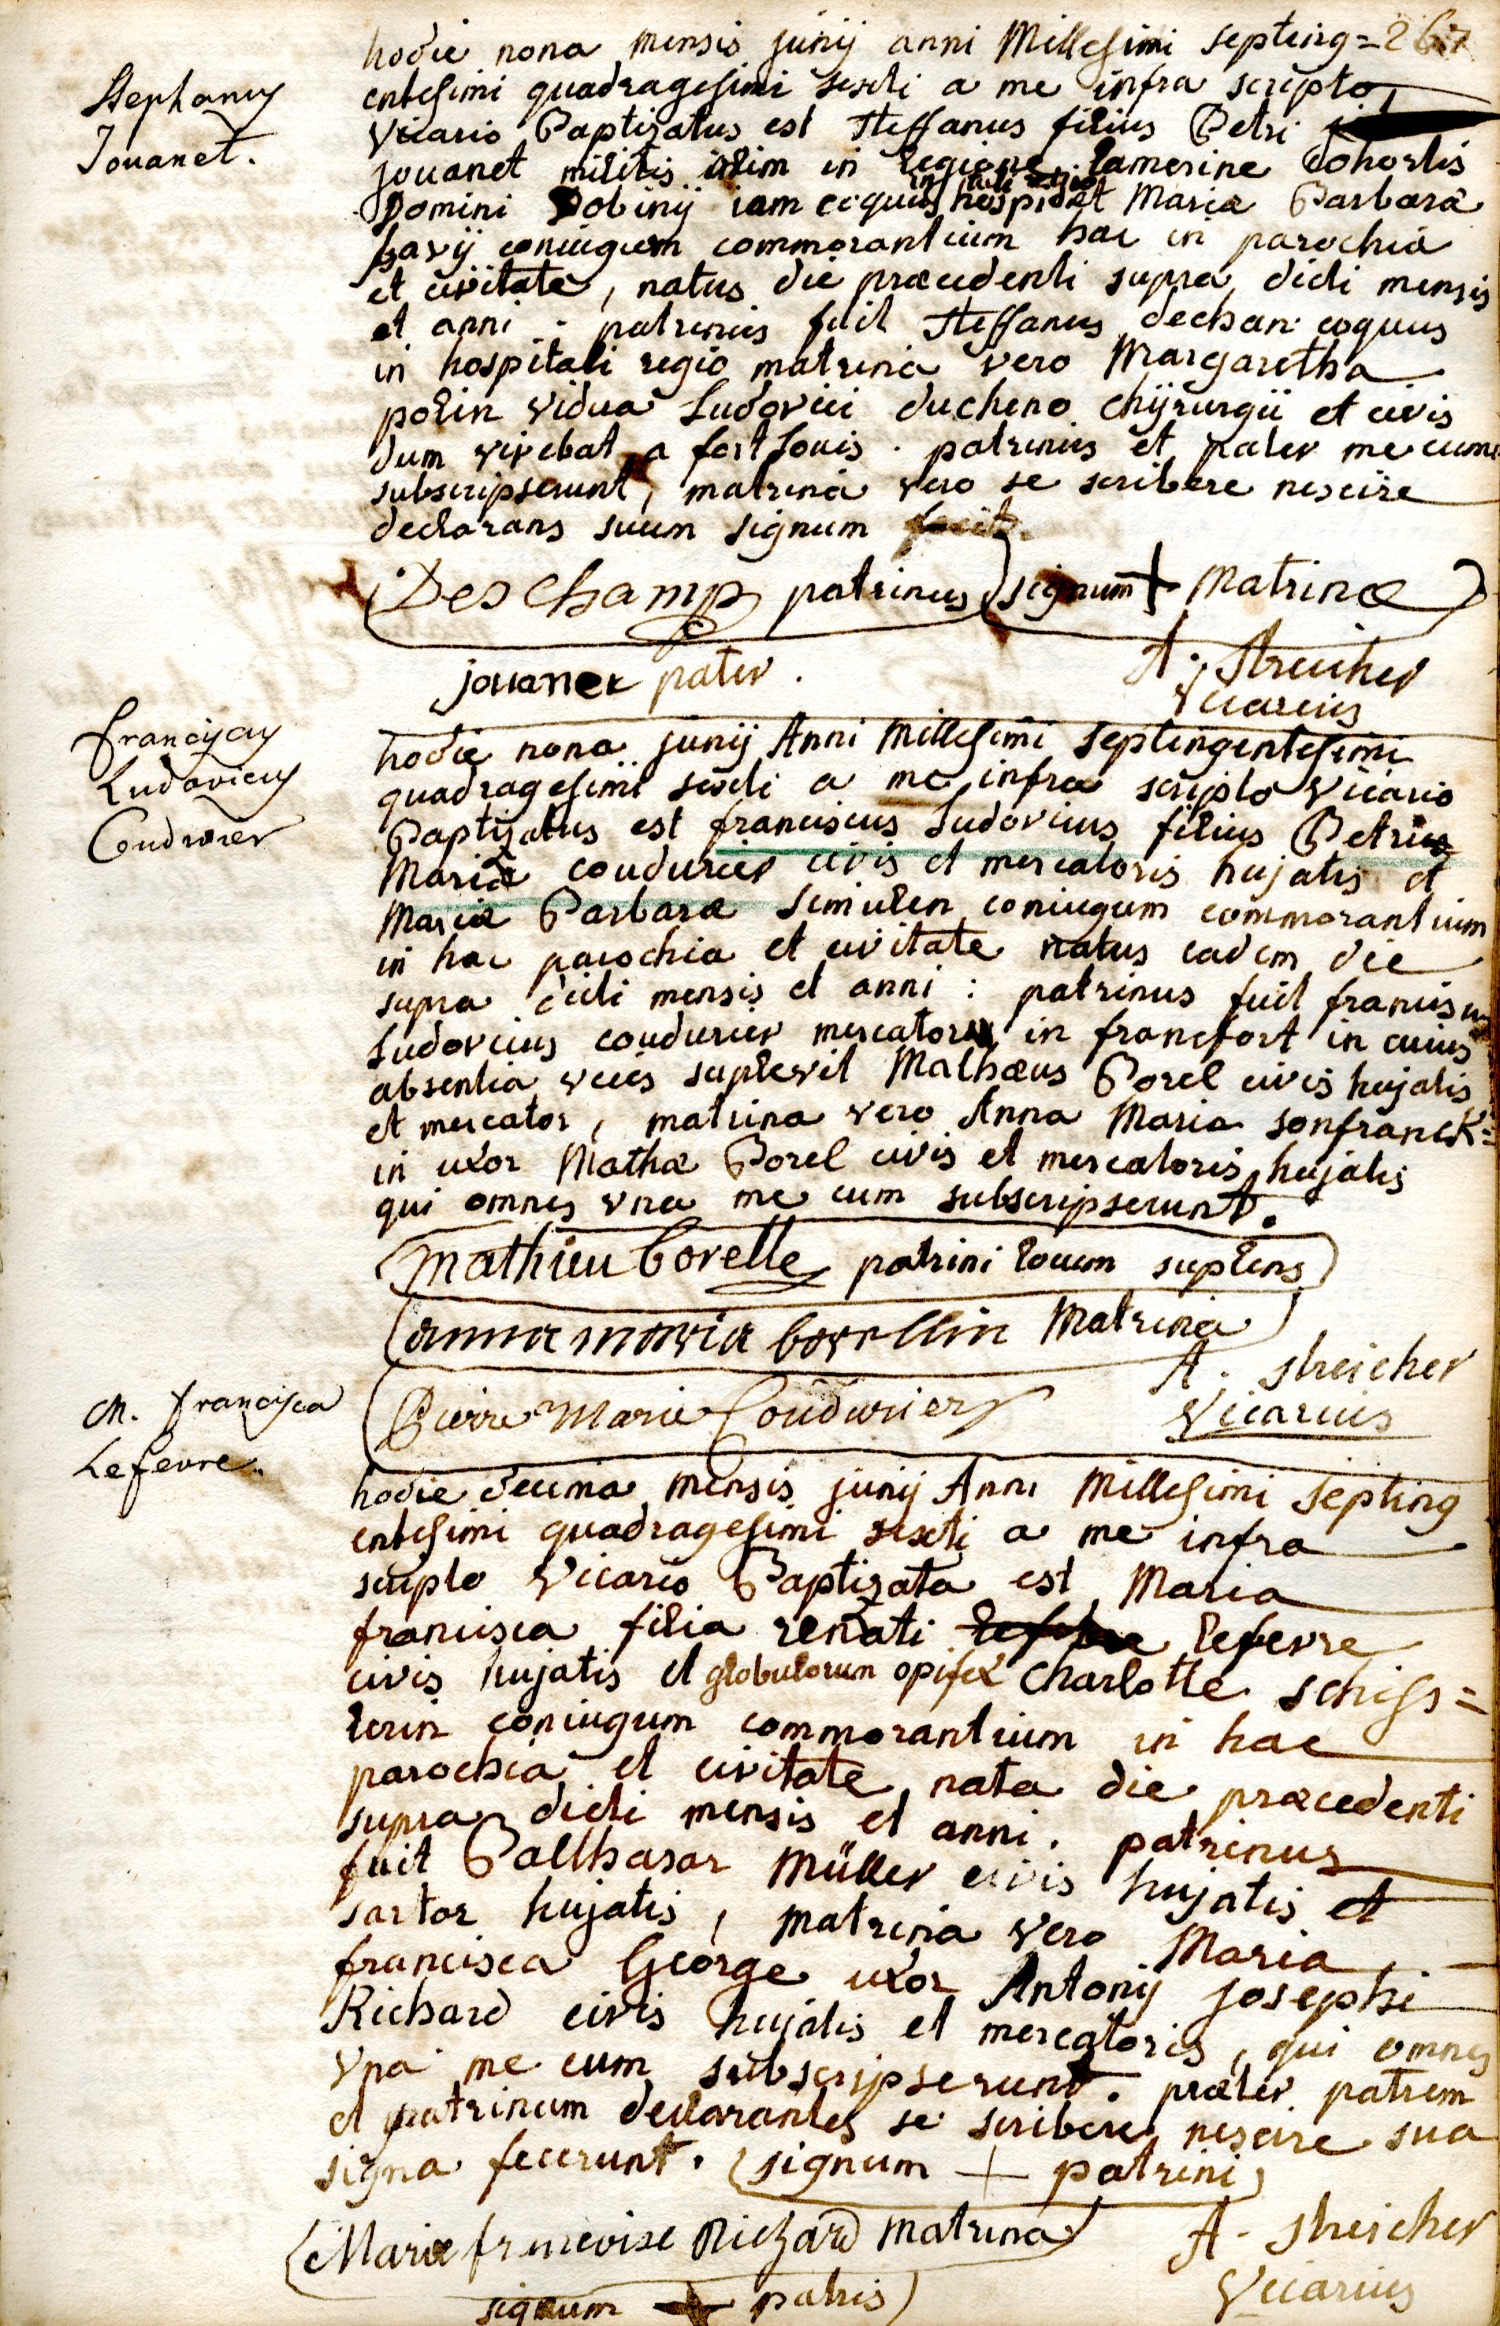 hodie nona mensis junij anni Millesimi septing= 267
Stephanus
Jouanet.
entesimi quadragesimi sexti a me infra scripto
vicario Baptizatus est Steffanus filius Petri
jouanet militis olim in legione Cohortis
Domini iam coquus hospi Maria Barbara
coniugum commorantium hac in parochia
et civitate, natus die præcedenti supra dicti mensis
et anni. patrinus fuit Steffanus dechan coquus
in hospitali regio matrina vero Margaretha
polin vidua Ludovici ducheno chyrurgii et civis
dum vivebat a fort Louis. patrinus et pater me cum
subscripserunt, matrina vero se scribere nescire
declarans suum signum fecit.
Deschamp patrinus signum + Matrinæ
jouanet pater. A. Streicher
Vicarius
Franciscus
Ludovicus
Coudurier
hodie nona junij Anni Millesimi septingentesimi
quadragesimi sexti a me infra scripto Vicario
Baptizatus est franciscus Ludovicus filius Petri
Mariæ coudurier civis et mercatoris hujatis et
Mariæ Barbaræ Simulen coniugum commorantium
in hac parochia et civitate natus eadem die
supra dicti mensis et anni: patrinus fuit franciscus
Ludovicus coudurier mercator in francfort in cuius
absentia vices suplevit Mathæus Borel civis hujatis
et mercator, matrina vero Anna Maria sonfranck=
in uxor Mathæ Borel civis et mercatoris hujatis
qui omnes vna me cum subscripserunt.
Mathieu Borelle patrini locum suplens
anna maria borellin Matrina
Pierre Marie Coudurier A. Streicher
Vicarius
M. Francisca
Lefevre.
hodie decima mensis junij Anni Millesimi septing
entesimi quadragesimi sexti a me infra
scripto Vicario Baptizata est Maria
francisca filia renati lefevre
civis hujatis et globulorum opifex Charlotte schiss=
lerin coniugum commorantium in hac
parochia et civitate nata die præcedenti
supra dicti mensis et anni. patrinus
fuit Balthasar Müller civis hujatis et
sartor hujatis, matrina vero Maria
francisca George uxor Antonij josephi
Richard civis hujatis et mercatoris, qui omnes
vna me cum subscripserunt. præter patrem
et patrinum declarantes se scribere nescire sua
signa fecerunt. signum + patrini
Marie francoise Richard Matrina A. Streicher
signum + patris Vicarius